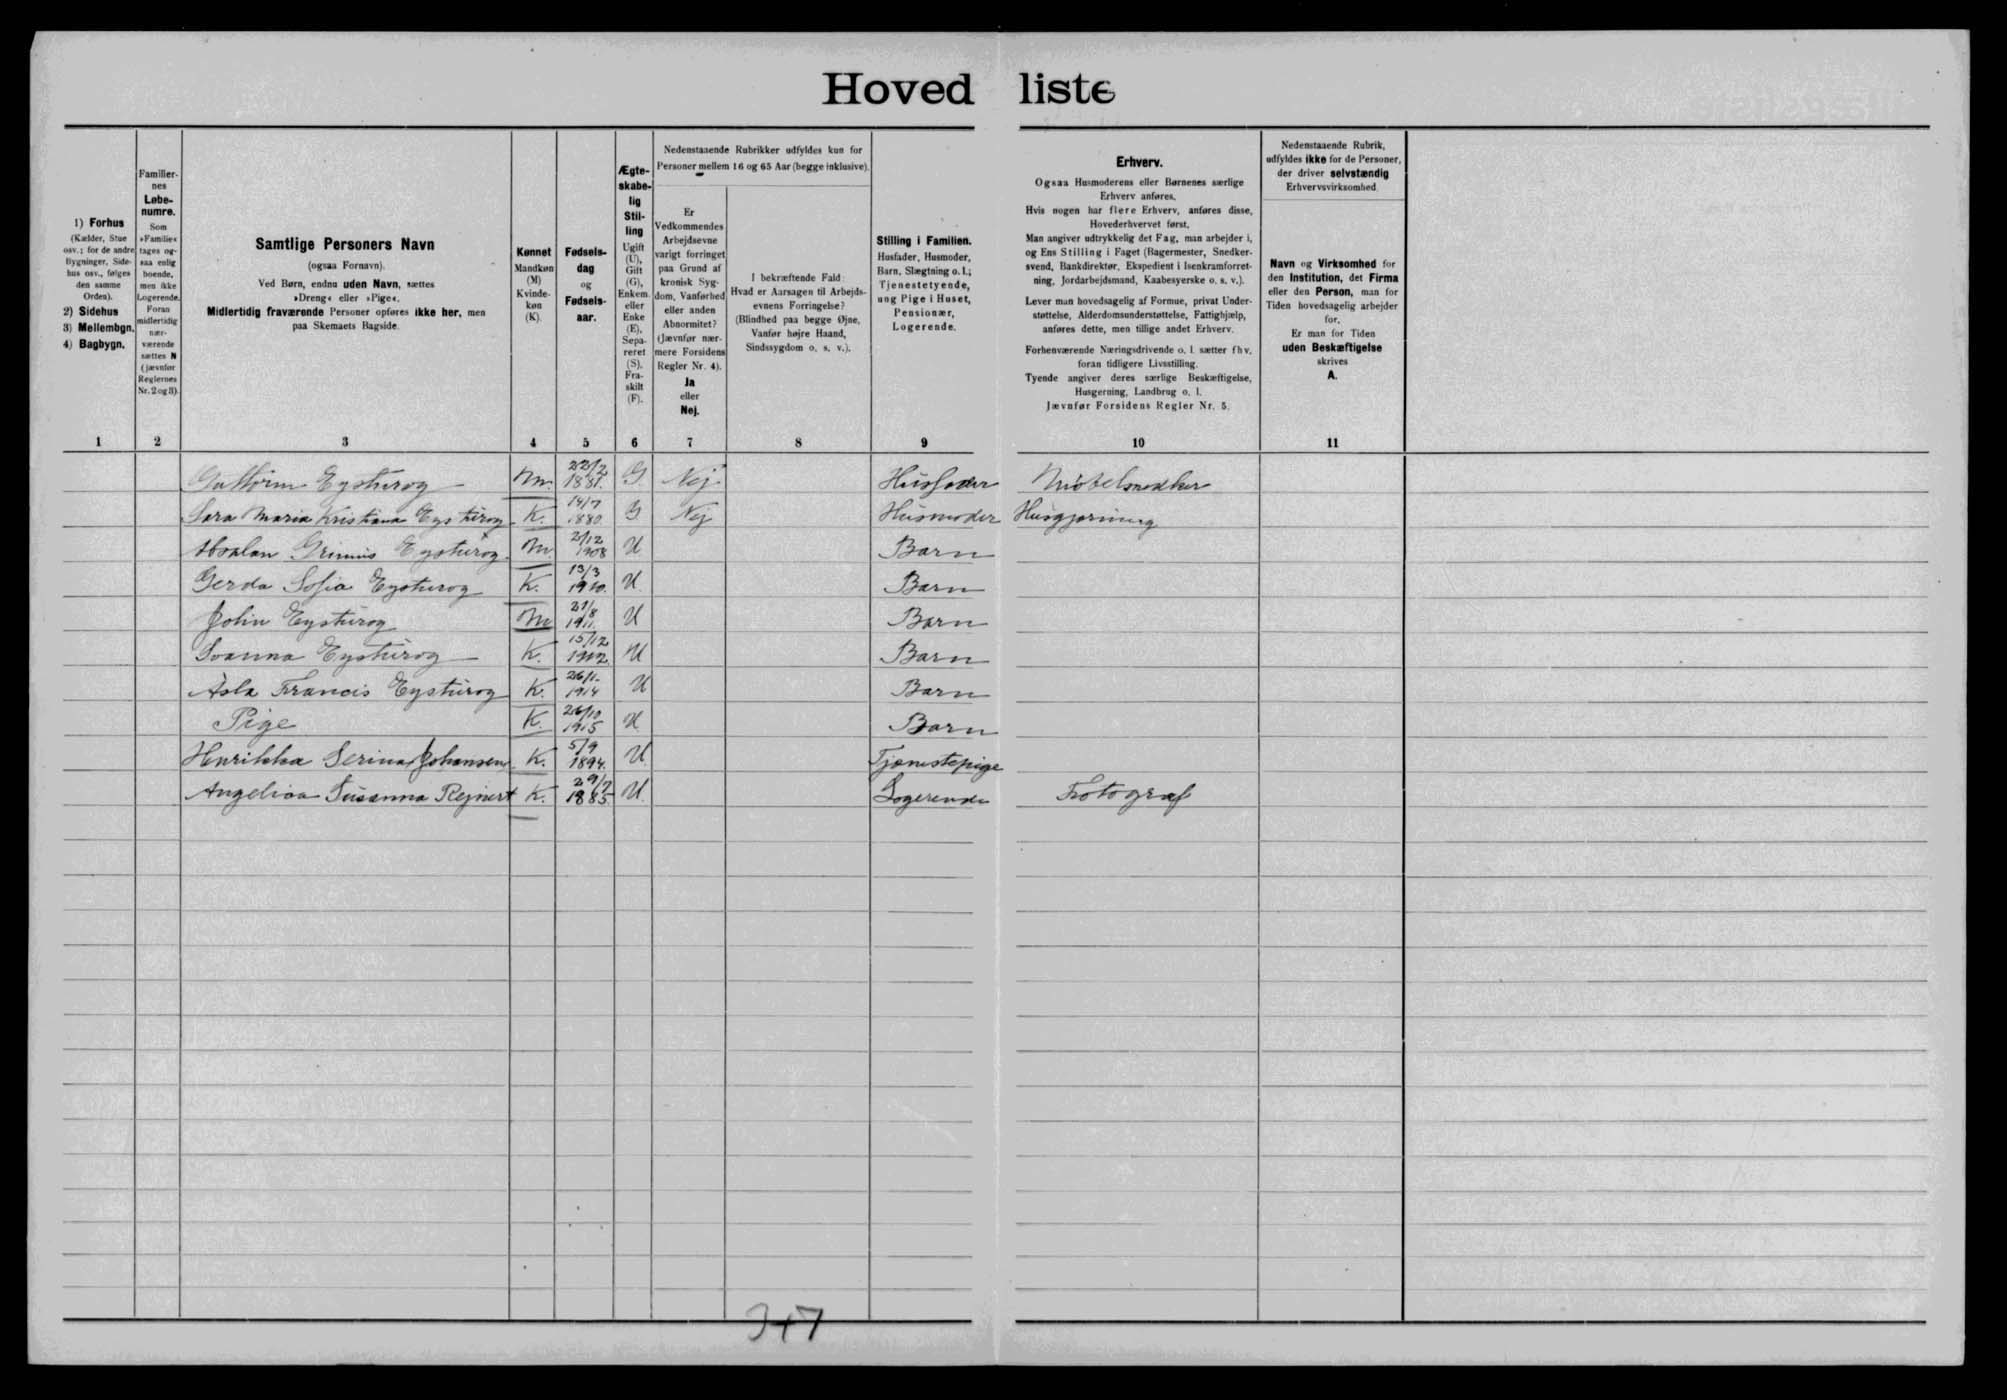 Hovedliste
1) Forhus
(Kælder, Stue
osv.; for de andre
Bygninger, Side-
hus osv., følges
den samme
Orden).
2) Sidehus
3) Mellembgn.
4) Bagbygn.
Familier-
nes
Løbe-
numre.
Som
»Familie«
tages og-
saa enlig
boende,
men ikke
Logerende.
Foran
midlertidig
nær-
værende
sættes N
(jævnfør
Reglernes
Nr. 2 og 3).
Samtlige Personers Navn
(ogsaa Fornavn).
Ved Børn, endnu uden Navn, sættes
»Dreng« eller »Pige«.
Midlertidig fraværende Personer opføres ikke her, men
paa Skemaets Bagside.
Kønnet
Mandkøn
(M)
Kvinde-
køn
(K).
Fødsels-
dag
og
Fødsels-
aar.
Ægte-
skabe-
lig
Stil-
ling
Ugift
(U),
Gift
(G),
Enkem.
eller
Enke
(E),
Sepa-
reret
(S),
Fra-
skilt
(F).
Nedenstaaende Rubrikker udfyldes kun for
Personer mellem 16 og 65 Aar (begge inklusive).
Er
Vedkommendes
Arbejdsevne
varigt forringet
paa Grund af
kronisk Syg-
dom, Vanførhed
eller anden
Abnormitet?
(Jævnfør nær-
mere Forsidens
Regler Nr. 4).
Ja
eller
Nej.
I bekræftende Fald:
Hvad er Aarsagen til Arbejds-
evnens Forringelse?
(Blindhed paa begge Øjne,
Vanfør højre Haand,
Sindssygdom o. s. v.).
Stilling i Familien.
Husfader, Husmoder,
Barn, Slægtning o. l.;
Tjenestetyende,
ung Pige i Huset,
Pensionær,
Logerende.
Erhverv.
Ogsaa Husmoderens eller Børnenes særlige
Erhverv anføres.
Hvis nogen har flere Erhverv, anføres disse,
Hovederhvervet først.
Man angiver udtrykkelig det Fag, man arbejder i,
og Ens Stilling i Faget (Bagermester, Snedker-
svend, Bankdirektør, Ekspedient i Isenkramforret-
ning, Jordarbejdsmand, Kaabesyerske o. s. v.).
Lever man hovedsagelig af Formue, privat Under-
støttelse, Alderdomsunderstøttelse, Fattighjælp,
anføres dette, men tillige andet Erhverv.
Forhenværende Næringsdrivende o. l. sætter fhv.
foran tidligere Livsstilling.
Tyende angiver deres særlige Beskæftigelse,
Husgerning, Landbrug o. l.
Jævnfør Forsidens Regler Nr. 5.
Nedenstaaende Rubrik,
udfyldes ikke for de Personer,
der driver selvstændig
Erhvervsvirksomhed.
Navn og Virksomhed for
den Institution, det Firma
eller den Person, man for
Tiden hovedsagelig arbejder
for.
Er man for Tiden
uden Beskæftigelse
skrives
A.
1 2 3 4 5 6 7 8 9 10 11
Guttorm Eysturoy M. 22/2 1881. G Nej Husfader Møbelsnedker
Sara Maria Kristiana Eysturoy K. 14/7 1880. G Nej Husmoder Husgjerning
Absalon Grimur Eysturoy M 2/12 1908 U Barn
Gerda Sofia Eysturoy K. 13/3 1910. U Barn
John Eysturoy M 21/8 1911. U Barn
Soanna Eysturoy K. 15/12 1912. U Barn
Asla Francis Eysturoy K. 26/1. 1914 U Barn
Pige K. 26/10 1915 U. Barn
Henrikka Serina Johansen K. 5/9 1894. U. Tjenestepige
Angelica Susanna Rejnert K. 29/7 1885. U. Logerende Fotograf
347